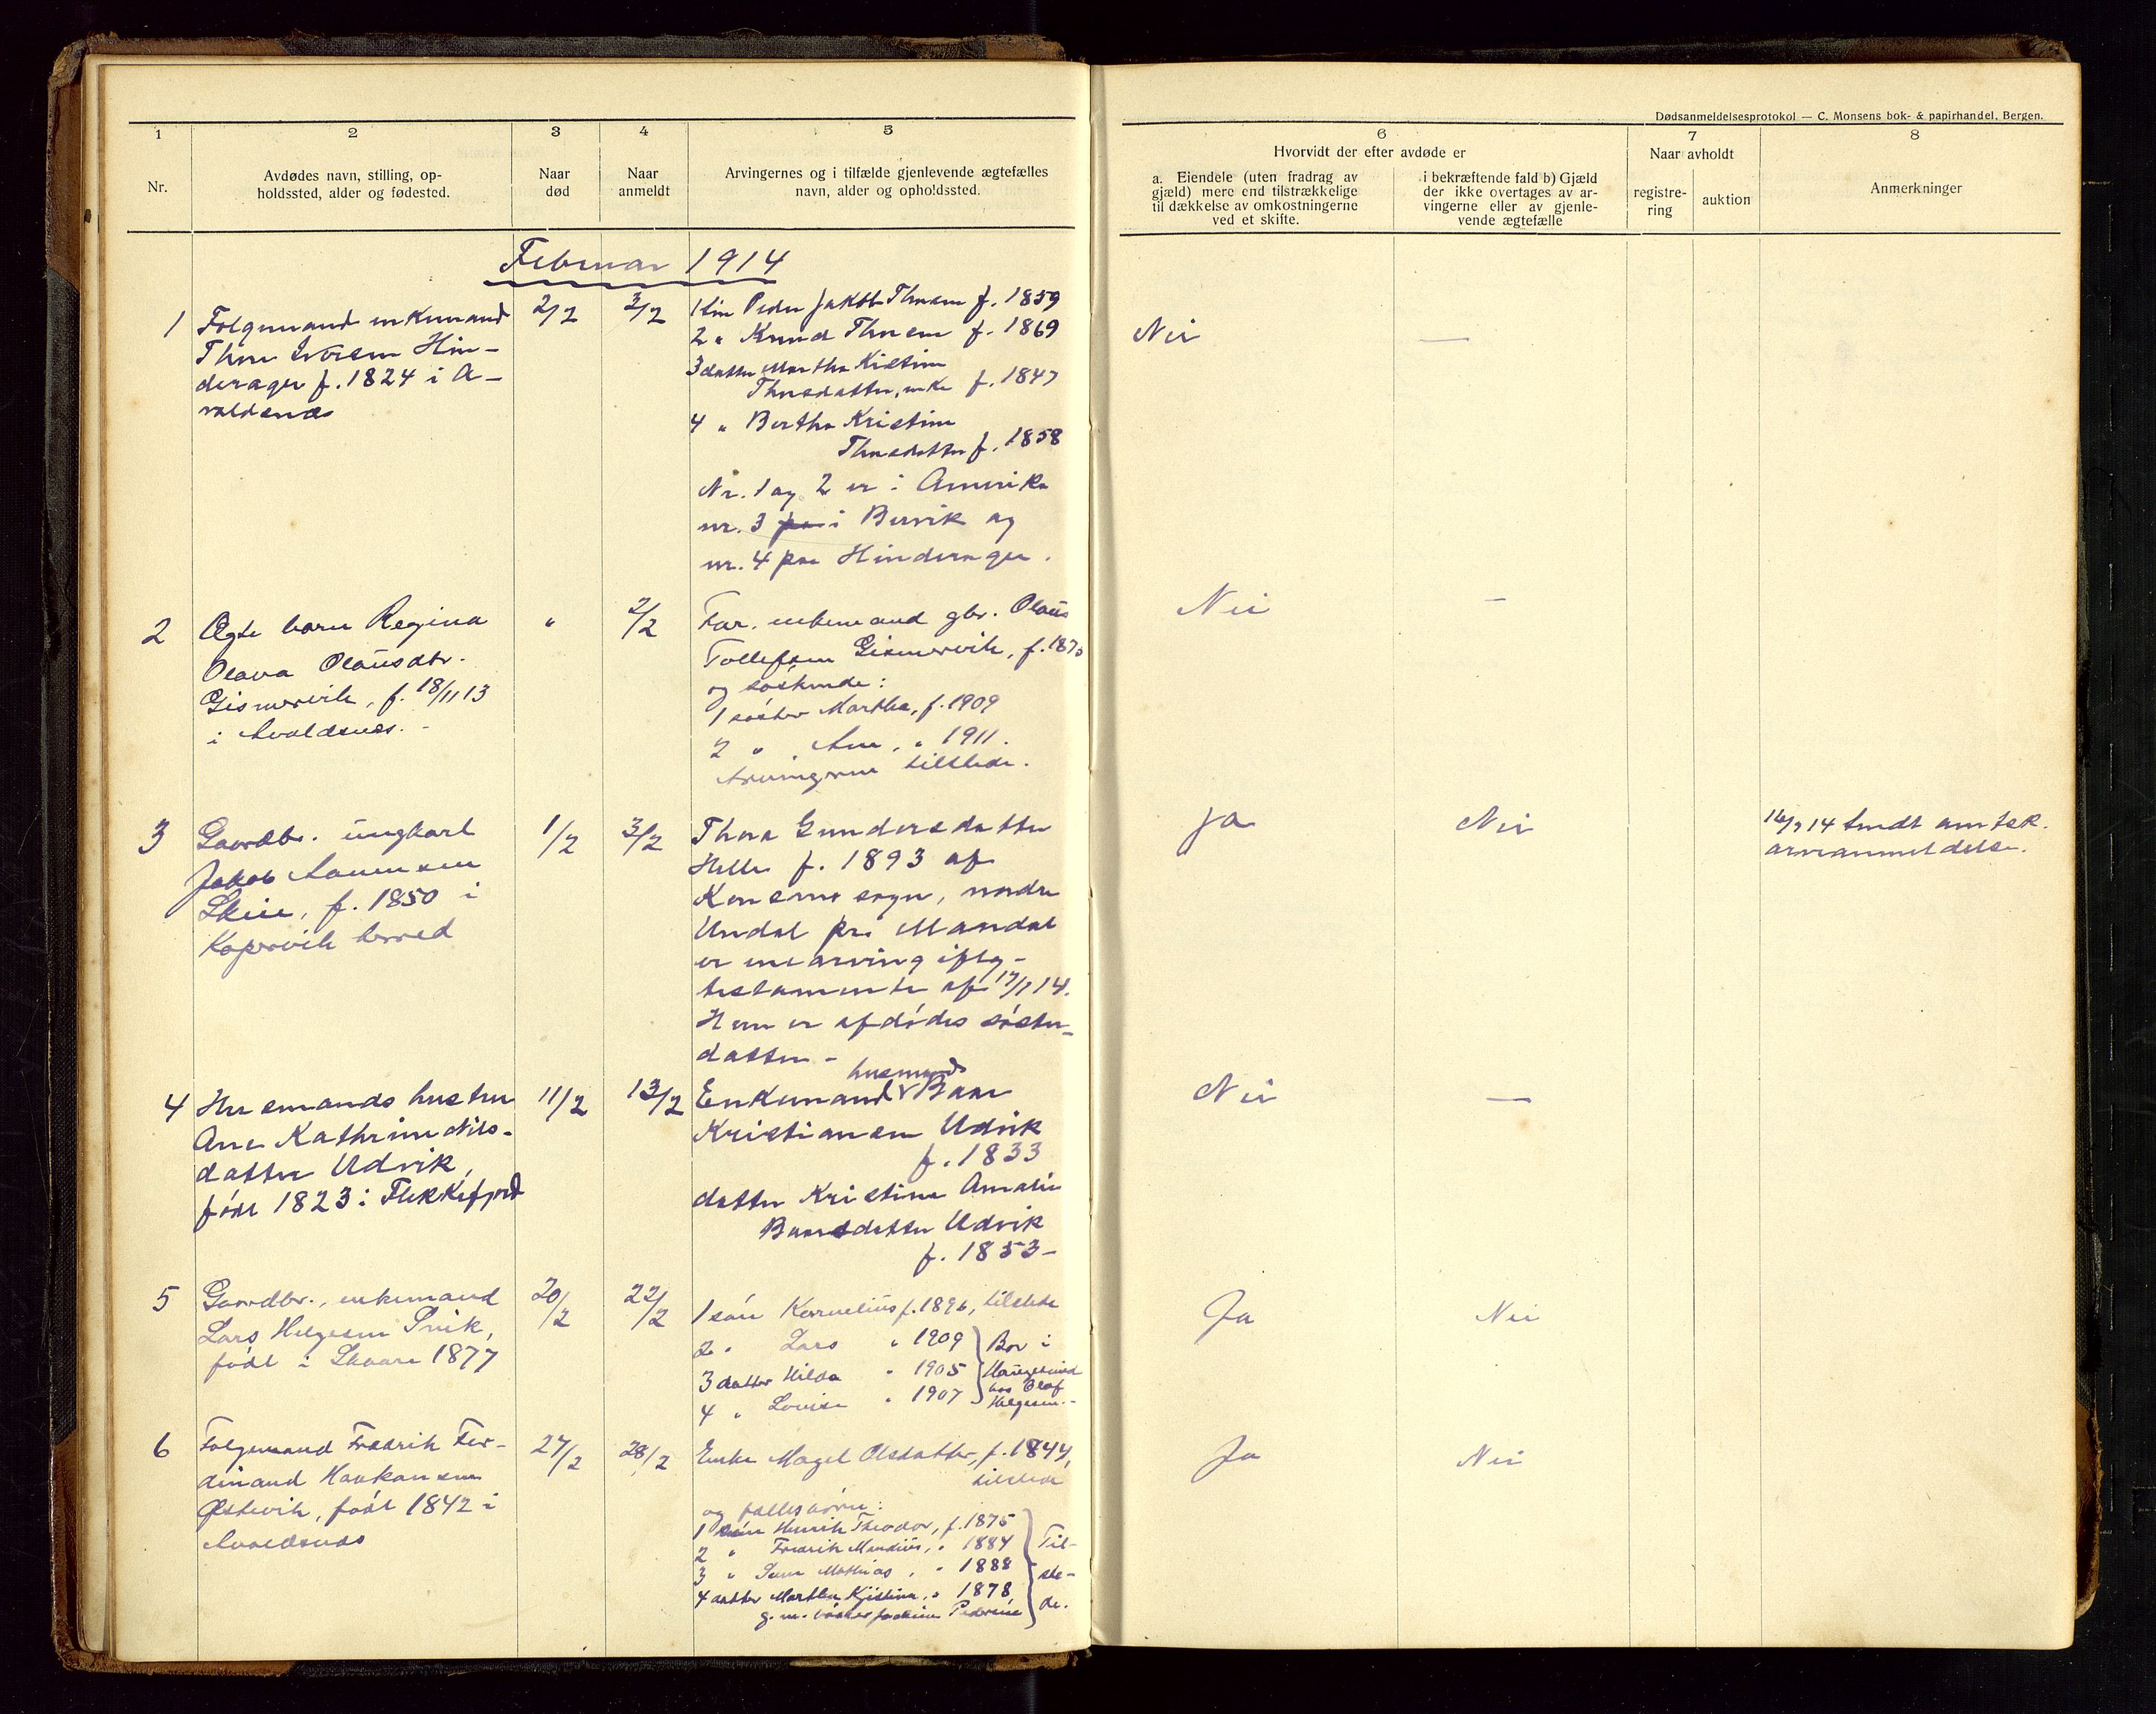 Dødsanmeldelsesprotokol — C. Monsens bok- & papirhandel, Bergen.
1
2
3
4
5
6
7
8
Nr.
Avdødes navn, stilling, op-
holdssted, alder og fødested.
Naar
død
Naar
anmeldt
Arvingernes og i tilfælde gjenlevende ægtefælles
navn, alder og opholdssted.
Hvorvidt der efter avdøde er
a. Eiendele (uten fradrag av
gjæld) mere end tilstrækkelige
til dækkelse av omkostningerne
ved et skifte.
i bekræftende fald b) Gjæld
der ikke overtages av ar-
vingerne eller av gjenle-
vende ægtefælle
Naar avholdt
registre-
ring
auktion
Anmerkninger
Februar 1914
1
Folgemand enkemand
Thore Iversen Hin-
derager f. 1824 i A-
valdsnæs
2/2
3/2
1 søn Peder Jakob Thorsen f. 1859
2 " Knud Thorsen f. 1869
3 datter Martha Kristine
Thorsdatter, enke f. 1847
4 " Bertha Kristine
Thorsdatter f. 1858
Nr. 1 og 2 er i Amerika
nr. 3 paa i Bervik og
nr. 4 paa Hinderager.
Nei
—
2
Ægte barn Regina
Olava Olausdtr.
Gismervik, f. 18/11 13
i Avaldsnes. -
"
2/2
Far. enkemand gbr. Olaus
Tollefsen Gismervik, f. 1870
og søskende:
1 søster Martha, f. 1909
2 " Ane, " 1911.
Arvingerne tilstede.
Nei
—
3
Gaardbr. ungkarl
Jakob Aanensen
Skeie, f. 1850 i
Kopervik herred
1/2
3/2
Thora Gundersdatter
Helle f. 1893 af
Konsmo sogn, nordre
Undal pr. Mandal
er enearving iflg-
testamente af 17/1 14.
Hun er afdødes søster-
datter -
Ja
Nei
14 sendt amtsk.
arveanmeldelse.
4
Husmands hustru
Ane Kathrine Nils-
datter Udvik,
født 1823 i Flekkefjord
11/2
13/2
husmand
Enkemand Baar
Kristiansen Udvik
f. 1833
datter Kristine Amalie
Baarsdatter Udvik
f. 1853 -
Nei
—
5
Gaardbr., enkemand
Lars Helgesen
født i Skaare 1877
20/2
22/2
1 søn Kornelius f. 1896, tilstede
2 " Lars " 1909
3 datter Hilda " 1905
4 " Louise " 1907
Bor i
Haugesund
hos Olaf
Helgesen. -
Ja
Nei
6
Folgemand Fredrik Fer-
dinand Haakonsen
Østevik, født 1842 i
Avaldsnæs
27/2
28/2
Enke Magel Olsdatter, f. 1844,
tilstede
og fællesbørn:
1 søn Henrik Theodor, f. 1875
2 " Fredrik Mandius, " 1884
3 " Mathias, " 1888
4 datter Martha Kristina, " 1878,
g. m. Pedersen
Til-
ste-
de.
Ja
Nei